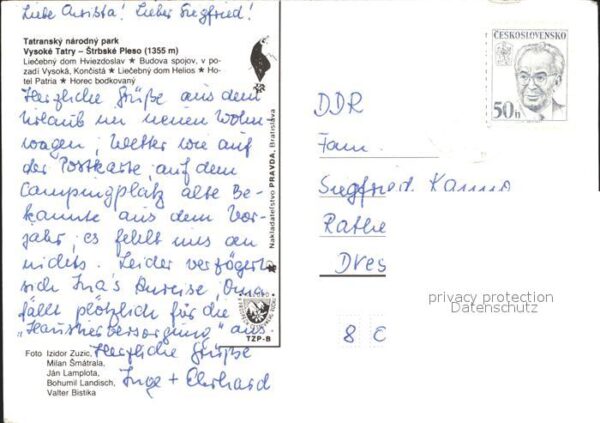 Liebe Christa! Lieber Siegfried!
Tatranský národný park
Vysoké Tatry – Štrbské Pleso (1355 m)
Liečebný dom Hviezdoslav ★ Budova spojov, v po-
zadí Vysoká, Končistá ★ Liečebný dom Helios ★ Ho-
tel Patria ★ Horec bodkovaný
Herzliche Grüße aus dem
Urlaub im neuen Wohn-
wagen; Wetter wie auf
der Postkarte, auf dem
Campingplatz alte Be-
kannte aus dem Vor-
jahr, es fehlt uns an
nichts. Leider verzögert
sich Ina's Anreise, Oma
fällt plötzlich für die
"Haustierversorgung" aus.
Herzliche Grüße
Inge + Ehrhard
Foto Izidor Zuzic,
Milan Šmátrala,
Ján Lamplota,
Bohumil Landisch,
Valter Bistika
Nakladateľstvo PRAVDA, Bratislava
TZP-B
ČESKOSLOVENSKO
50 h
DDR
Fam.
Siegfried
Rathe
Dres
8 E
privacy protection
Datenschutz